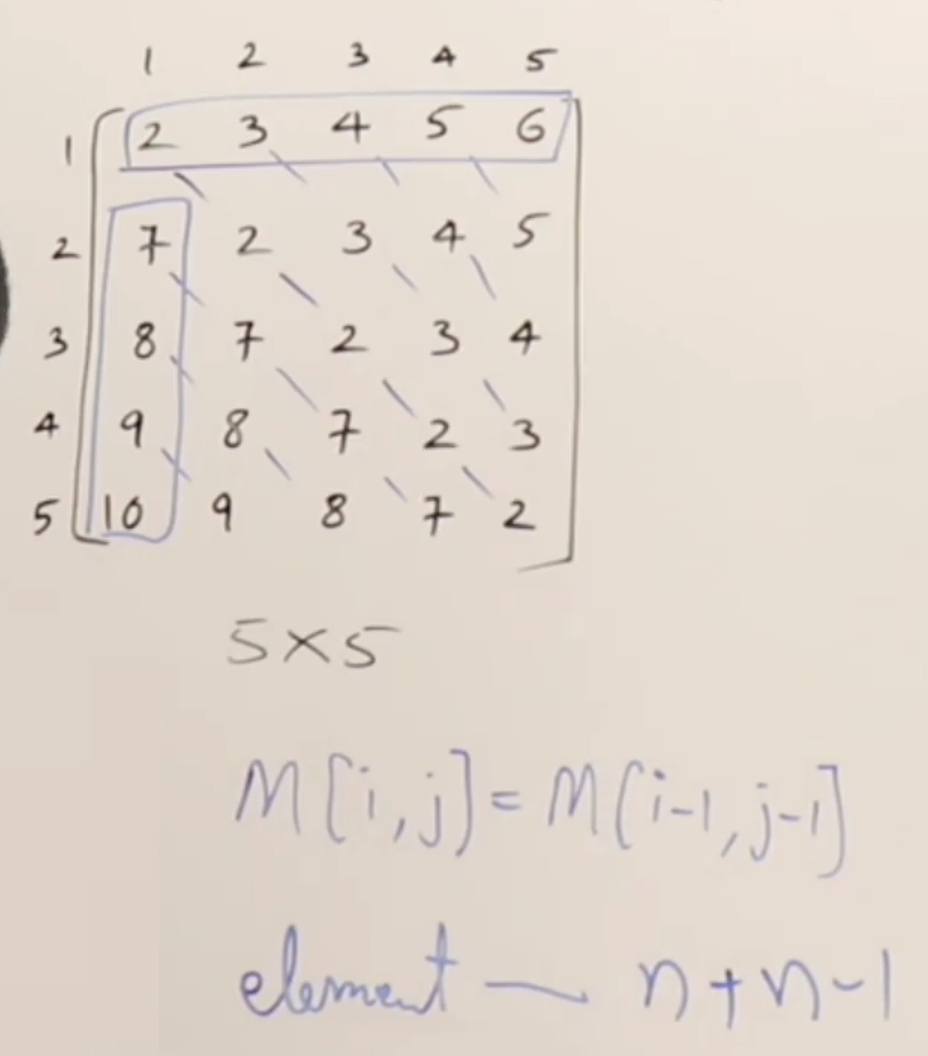 1 2 3 4 5
1 2 3 4 5 6
2 7 2 3 4 5
3 8 7 2 3 4
4 9 8 7 2 3
5 10 9 8 7 2
5×5
M[i,j] = M[i-1, j-1]
element — n+n-1